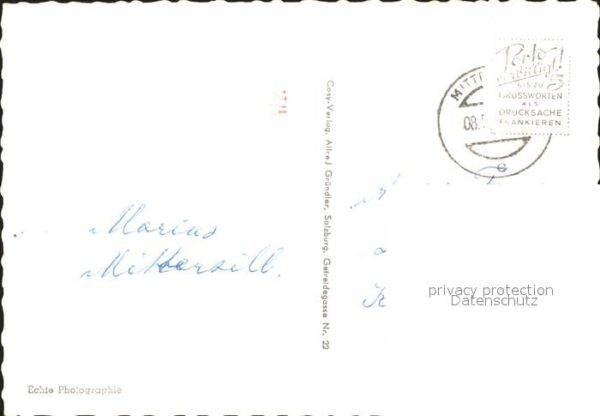 Marius
Mittersill.
Echte Photographie
Cosy-Verlag, Alfred Gründler, Salzburg, Getreidegasse Nr. 22
MITTE
08.
c
Porto
verbilligt!
BIS ZU 5
GRUSSWORTEN
ALS
DRUCKSACHE
FRANKIEREN
privacy protection
Datenschutz